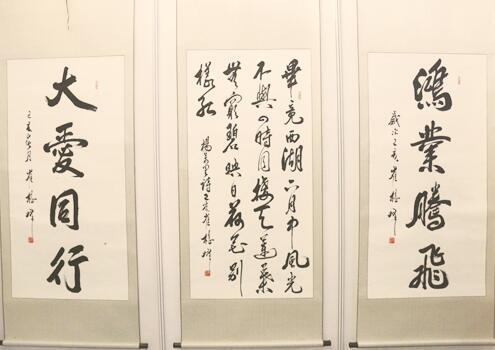 鴻業騰飛
歲次己亥 崔
畢竟西湖六月中風光
不與四時同接天蓮葉
無窮碧映日荷花別
樣紅
楊萬里詩己亥崔
大愛同行
己亥 月 崔